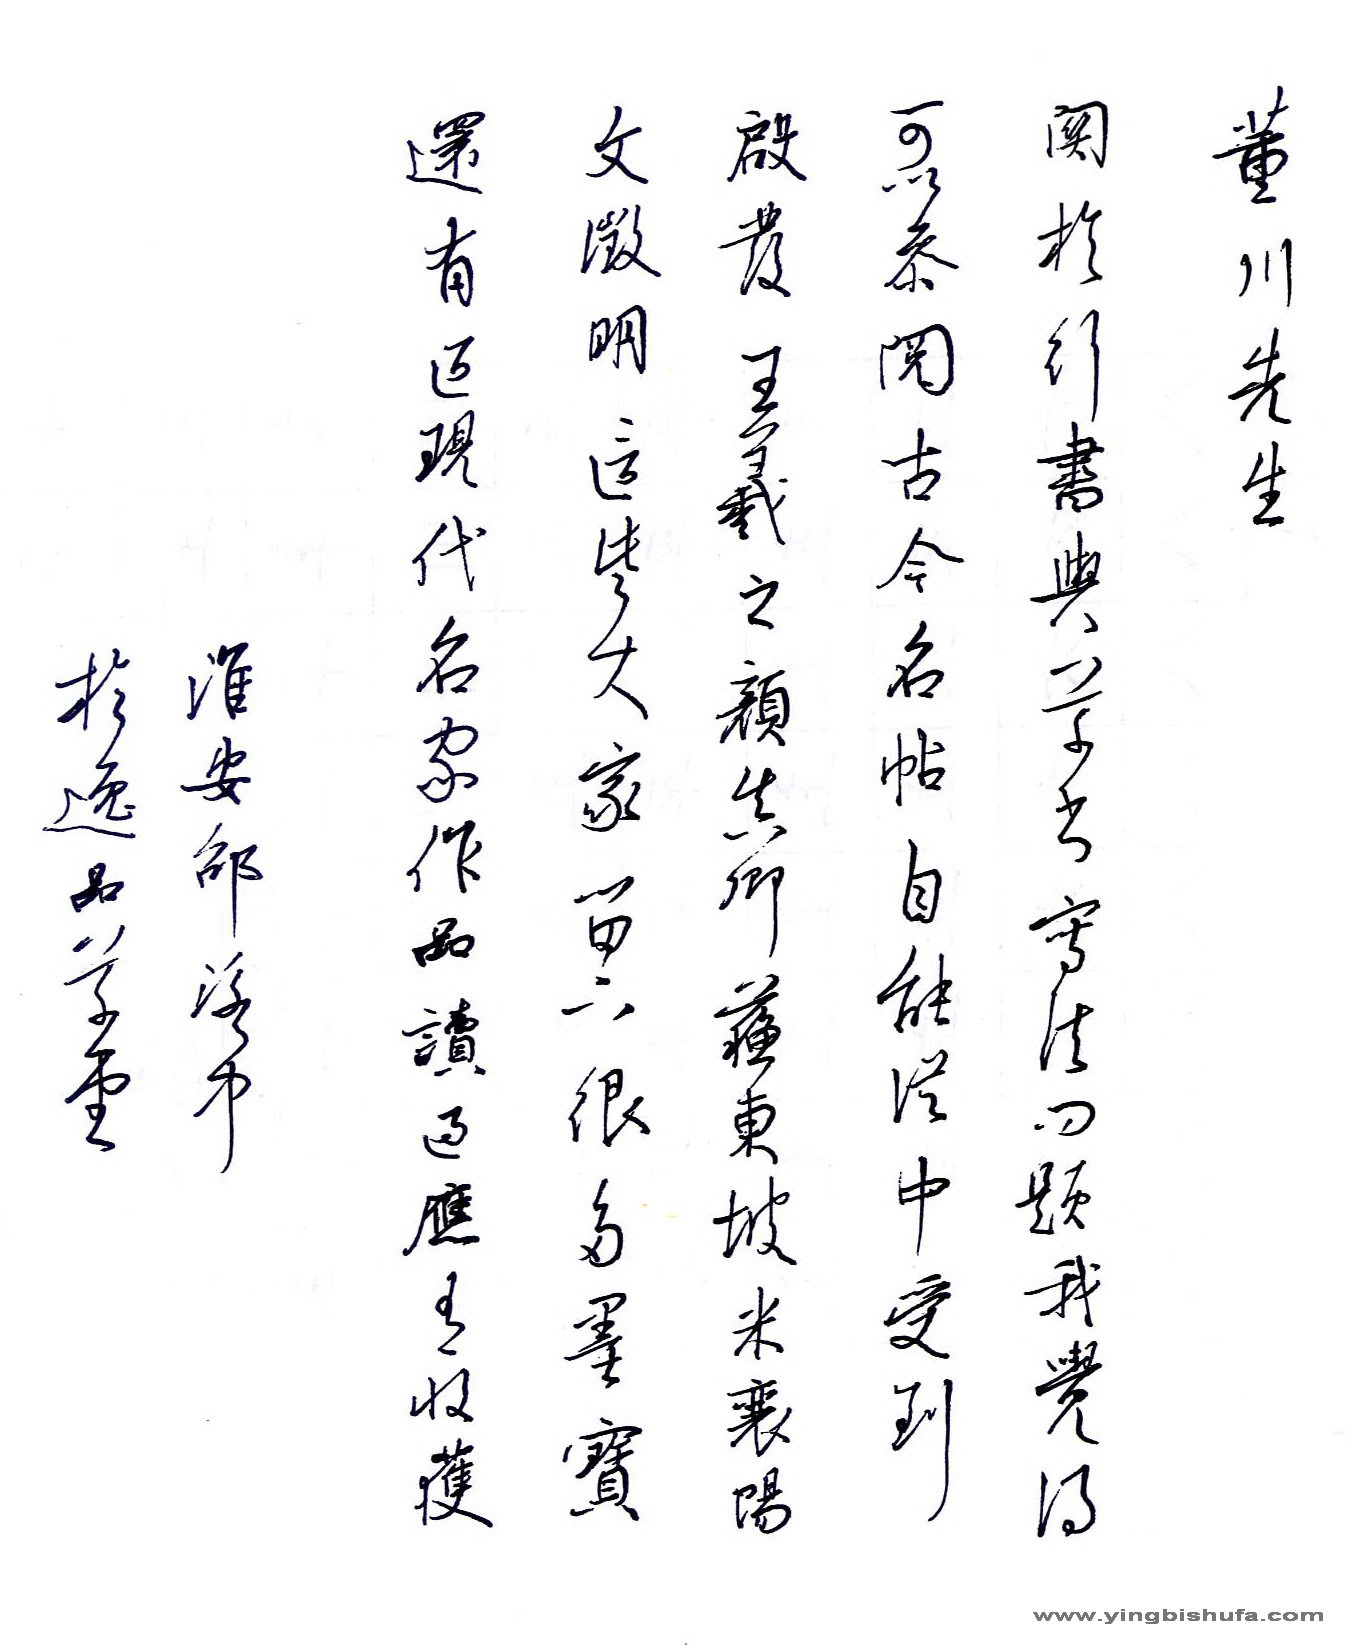 董川先生
關於行書與草書寫法問題我覺得
可以叅閱古今名帖自能從中受到
啟發王羲之顏真卿蘇東坡米襄陽
文徵明這些大家留下很多墨寶
還有近現代名家作品讀過應有收獲
淮安邵
於逸品草堂
www.yingbishufa.com